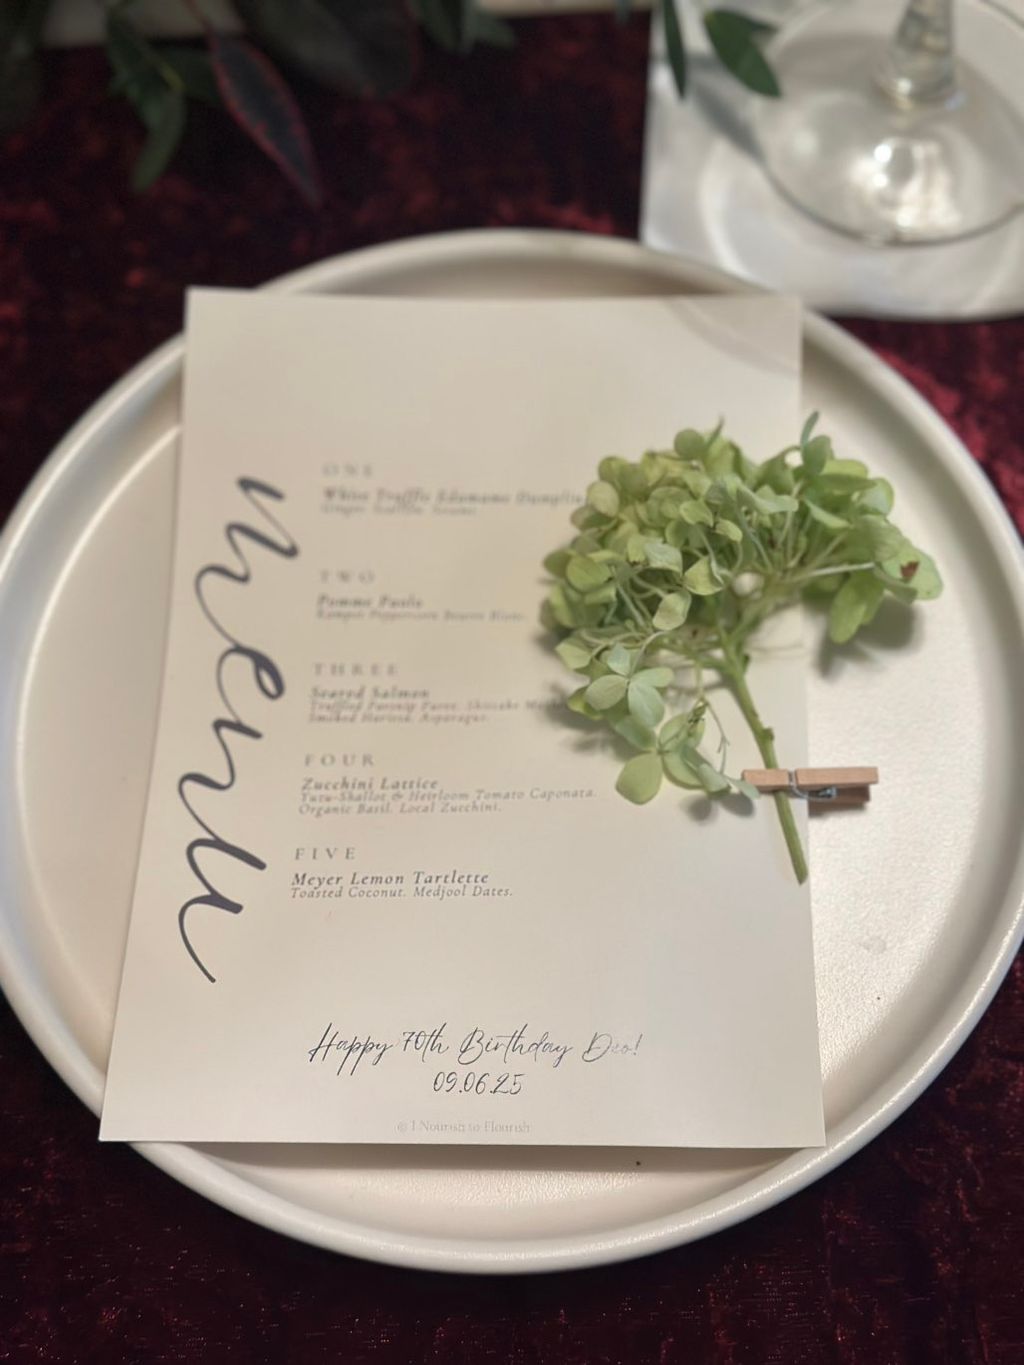 menu
ONE
White Truffle Edamame Dumplin
Ginger. Scallion. Sesame.
TWO
Pomme Paolo
Kampot Peppercorn Beurre Blanc.
THREE
Seared Salmon
Truffled Parsnip Puree. Shiitake
Smoked Harissa. Asparagus.
FOUR
Zucchini Lattice
Yuzu-Shallot & Heirloom Tomato Caponata.
Organic Basil. Local Zucchini.
FIVE
Meyer Lemon Tartlette
Toasted Coconut. Medjool Dates.
Happy 70th Birthday Deo!
09.06.25
© I Nourish to Flourish